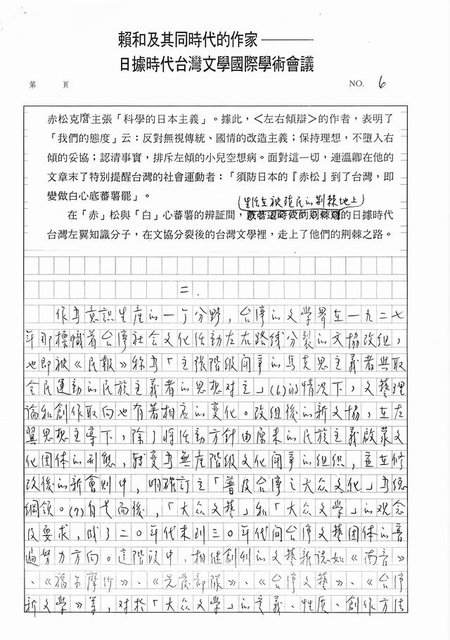 賴和及其同時代的作家
日據時代台灣文學國際學術會議
第 頁 NO. 6
赤松克麿主張「科學的日本主義」。據此，＜左右傾辯＞的作者，表明了
「我們的態度」云：反對無視傳統、國情的改造主義；保持理想，不墮入右
傾的妥協；認清事實，排斥左傾的小兒空想病。面對這一切，連溫卿在他的
文章末了特別提醒台灣的社會運動者：「須防日本的『赤松』到了台灣，即
變做白心底蕃薯罷」。
(生活在被殖民的荆棘地上)
在「赤」松與「白」心蕃薯的辯証間，的日據時代
台灣左翼知識分子，在文協分裂後的台灣文學裡，走上了他們的荊棘之路。
二.
作為意識生產的一个分野，台湾的文學界在一九二七
年那標幟着台湾社会文化活動左右路線分裂的文協改組，
也即被《民報》称為「主張階級鬥爭的馬克思主義者與取
全民運動的民族主義者的思想対立」(6)的情况下，文藝理
論和創作取向也有著相應的变化。改組後的新文協，在左
翼思想主導下，除了將活動方針由原來的民族主義啟蒙文
化団体的形態，転变為無產階級文化鬥爭的組織，並在修
改後的新會則中，明確訂立「普及台湾之大众文化」為総
綱領。(7)自其而後，「大众文藝」和「大众文學」的观念
及要求，成了二〇年代末到三〇年代間台湾文藝団体的普
遍努力方向。這階段中，相継創刊的文藝新誌如《南音》
、《福爾摩沙》、《先發部隊》、《台湾文藝》、《台湾
新文學》等，对於「大众文學」的定義、性质、創作方法